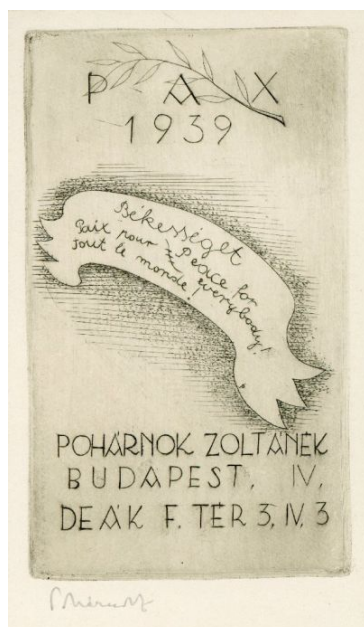 PAX
1939
Békességet
Paix pour
tout le monde!
Peace for
everybody!
POHÁRNOK ZOLTÁNÉK
BUDAPEST, IV,
DEÁK F. TÉR 3, IV. 3